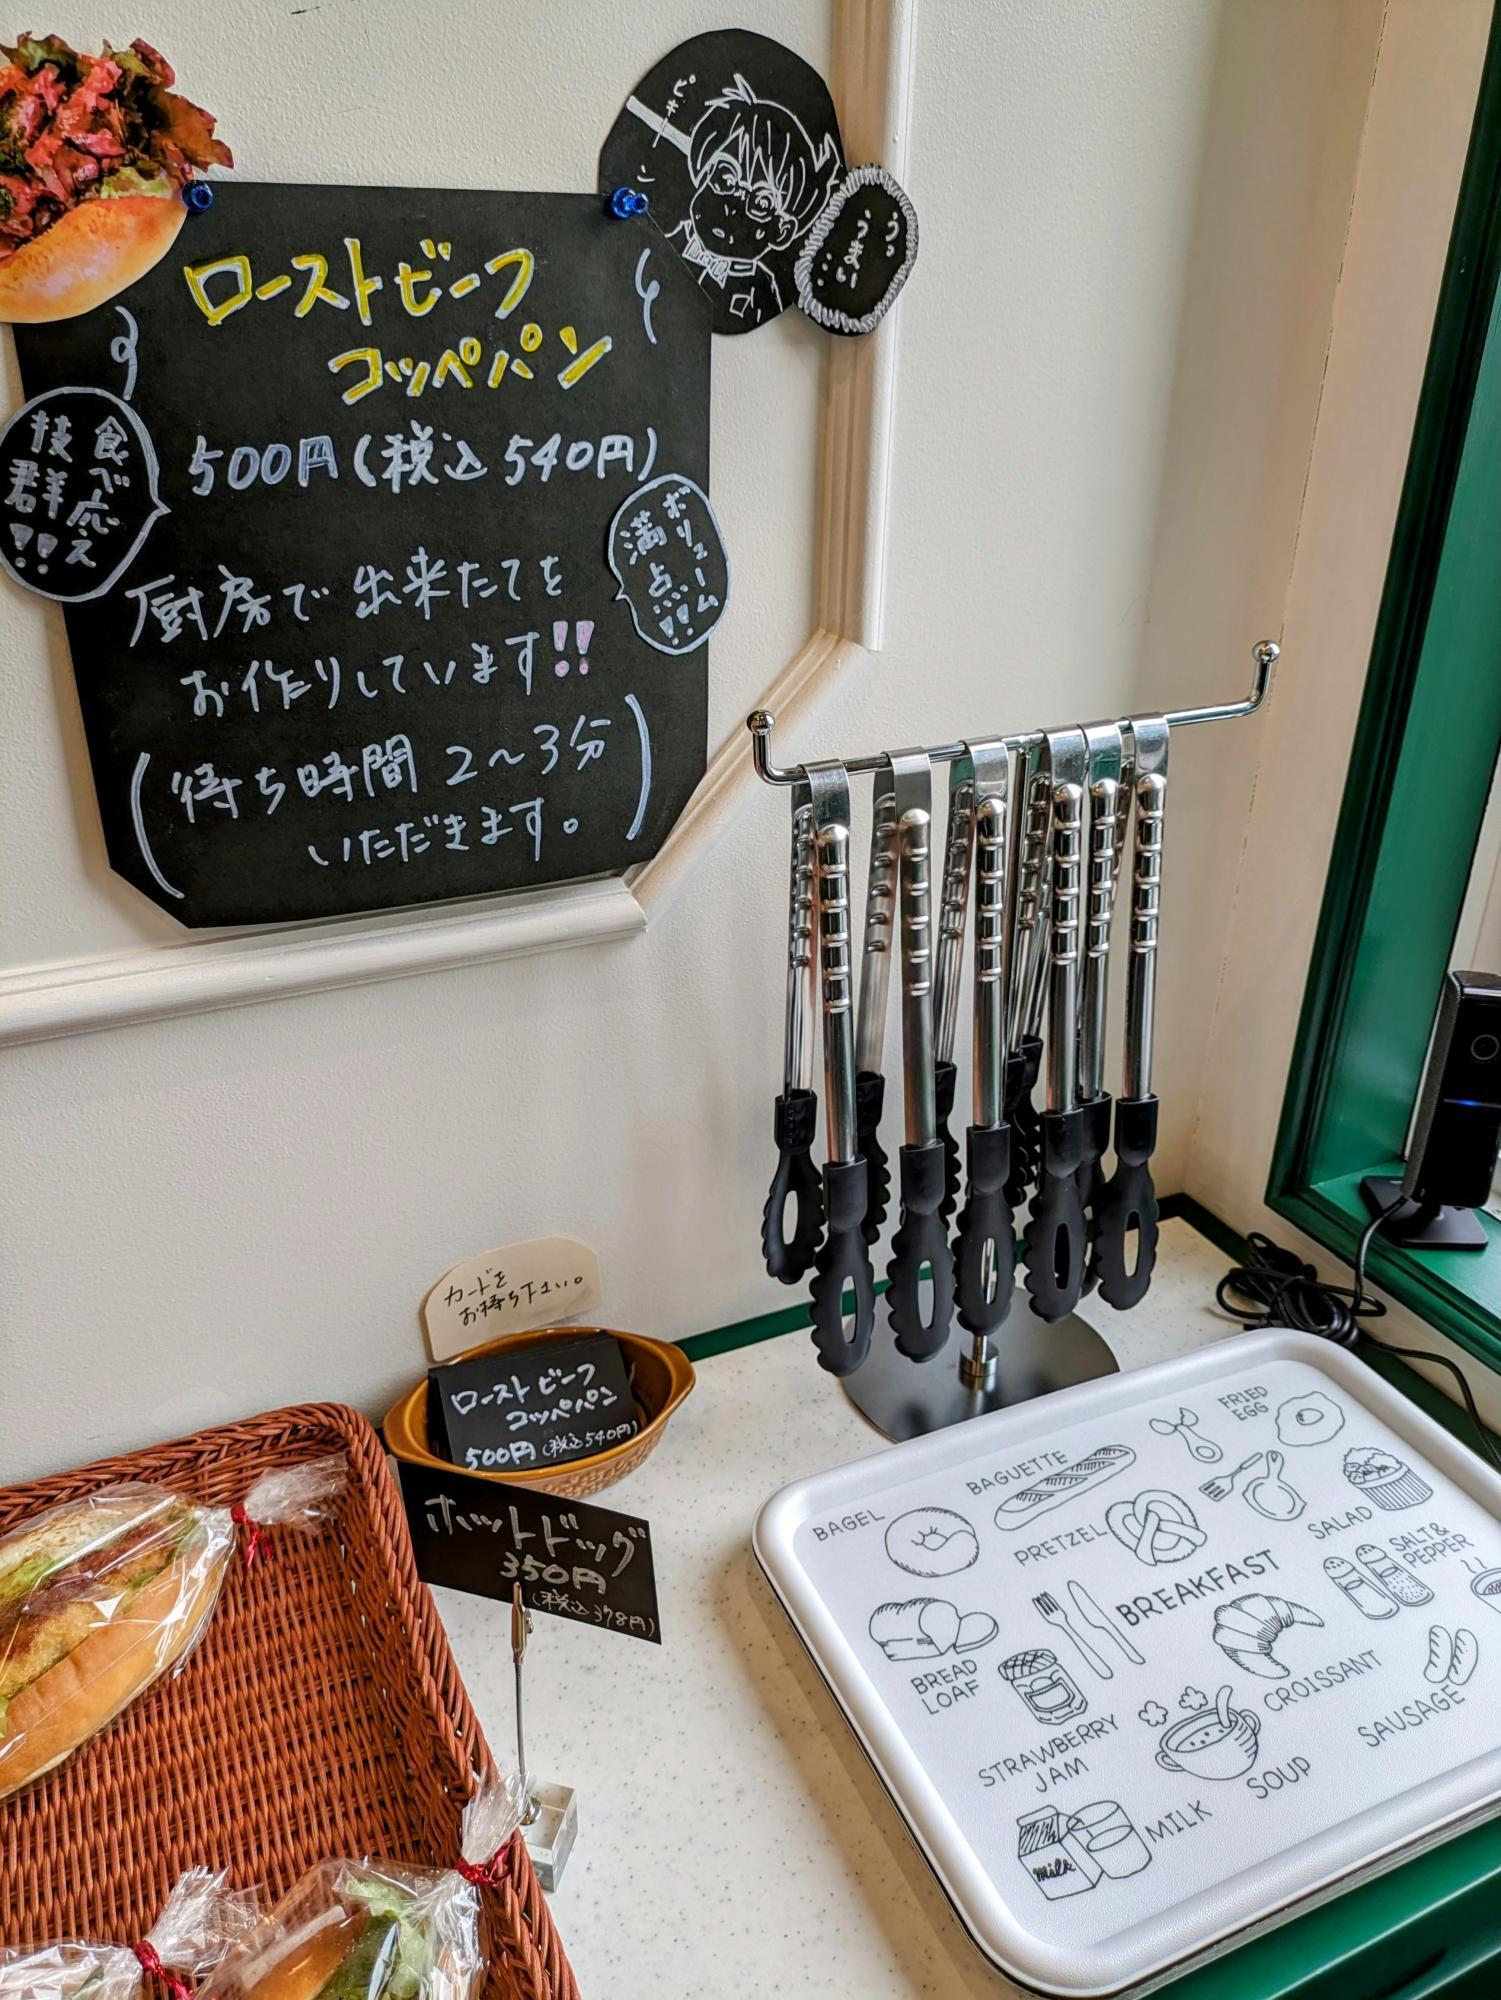 ピキーン
うっ
うまい…
ローストビーフ
コッペパン
500円(税込540円)
食べ応え
技群!!
ボリューム
満点!!
厨房で出来たてを
お作りしています!!
(待ち時間 2〜3分
いただきます。)
カードを
お持ち下さい。
ローストビーフ
コッペパン
500円(税込540円)
ホットドッグ
350円
(税込378円)
FRIED
EGG
BAGUETTE
BAGEL
PRETZEL
SALAD
SALT&
PEPPER
BREAKFAST
BREAD
LOAF
CROISSANT
SAUSAGE
STRAWBERRY
JAM
SOUP
MILK
milk